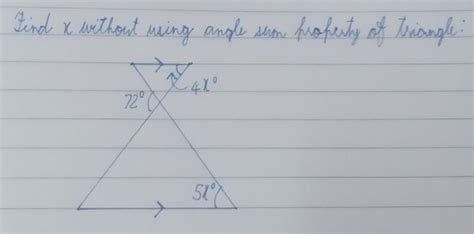 Find x without using angle sum property of triangle:
4x°
72°
5x°